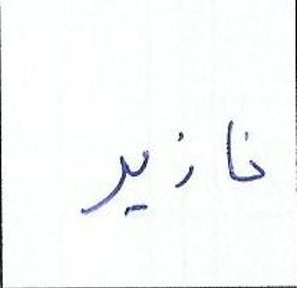 نازير